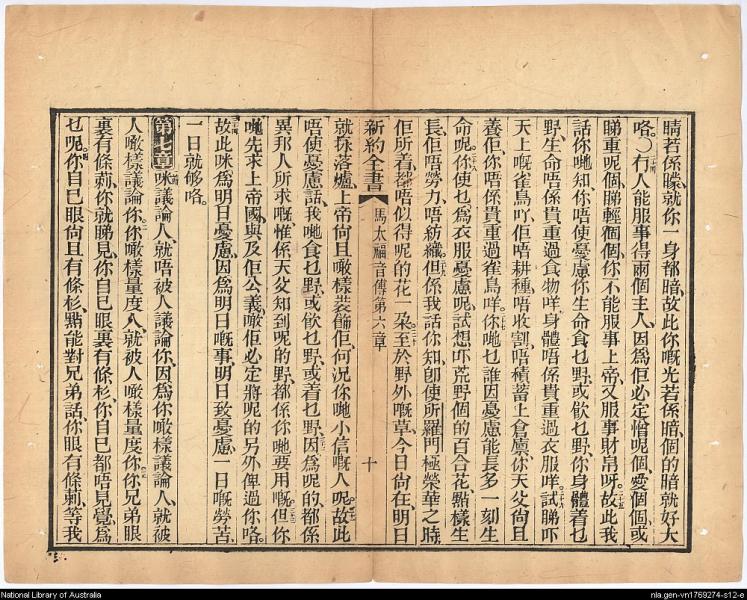 睛若係矇就你一身都暗故此你嘅光若係暗個的暗就好大
咯〇冇人能服事得兩個主人因爲佢必定憎呢個愛個個或
睇重呢個睇輕個個你不能服事上帝又服事財帛呀故此我
話你哋知你唔使憂慮你生命食乜野或飲乜野你身體着乜
野生命唔係貴重過食物咩身體唔係貴重過衣服咩試睇吓
天上嘅雀鳥吖佢唔耕種唔收割唔積蓄上倉廒你天父尚且
養佢你唔係貴重過雀鳥咩你哋乜誰因憂慮能長多一刻生
命呢你使乜爲衣服憂慮呢試想吓荒野個的百合花點樣生
長佢唔勞力唔紡織但係我話你知卽使所羅門極榮華之時
佢所着都唔似得呢的花一朶至於野外嘅草今日尙在明日
新約全書 馬太福音傳第六章 十
就掭落爐上帝尙且噉樣裝飾佢何況你哋小信嘅人呢故此
唔使憂慮話我哋食乜野或飲乜野或着乜野因爲呢的都係
異邦人所求嘅惟係天父知到呢的野都係你哋要用嘅但你
哋先求上帝國與及佢公義噉佢必定將呢的另外俾過你咯
故此咪爲明日憂慮因爲明日嘅事明日致憂慮一日嘅勞苦
一日就够咯
第七章 咪議論人就唔被人議論你因爲你噉樣議論人就被
人噉樣議論你你噉樣量度人就被人噉樣量度你你兄弟眼
裏有條莿你就睇見你自己眼裏有條杉你自己都唔見覺爲
乜呢你自己眼尙且有條杉點能對兄弟話你眼有條莿等我
National Library of Australia
nla.gen-vn1769274-s12-e